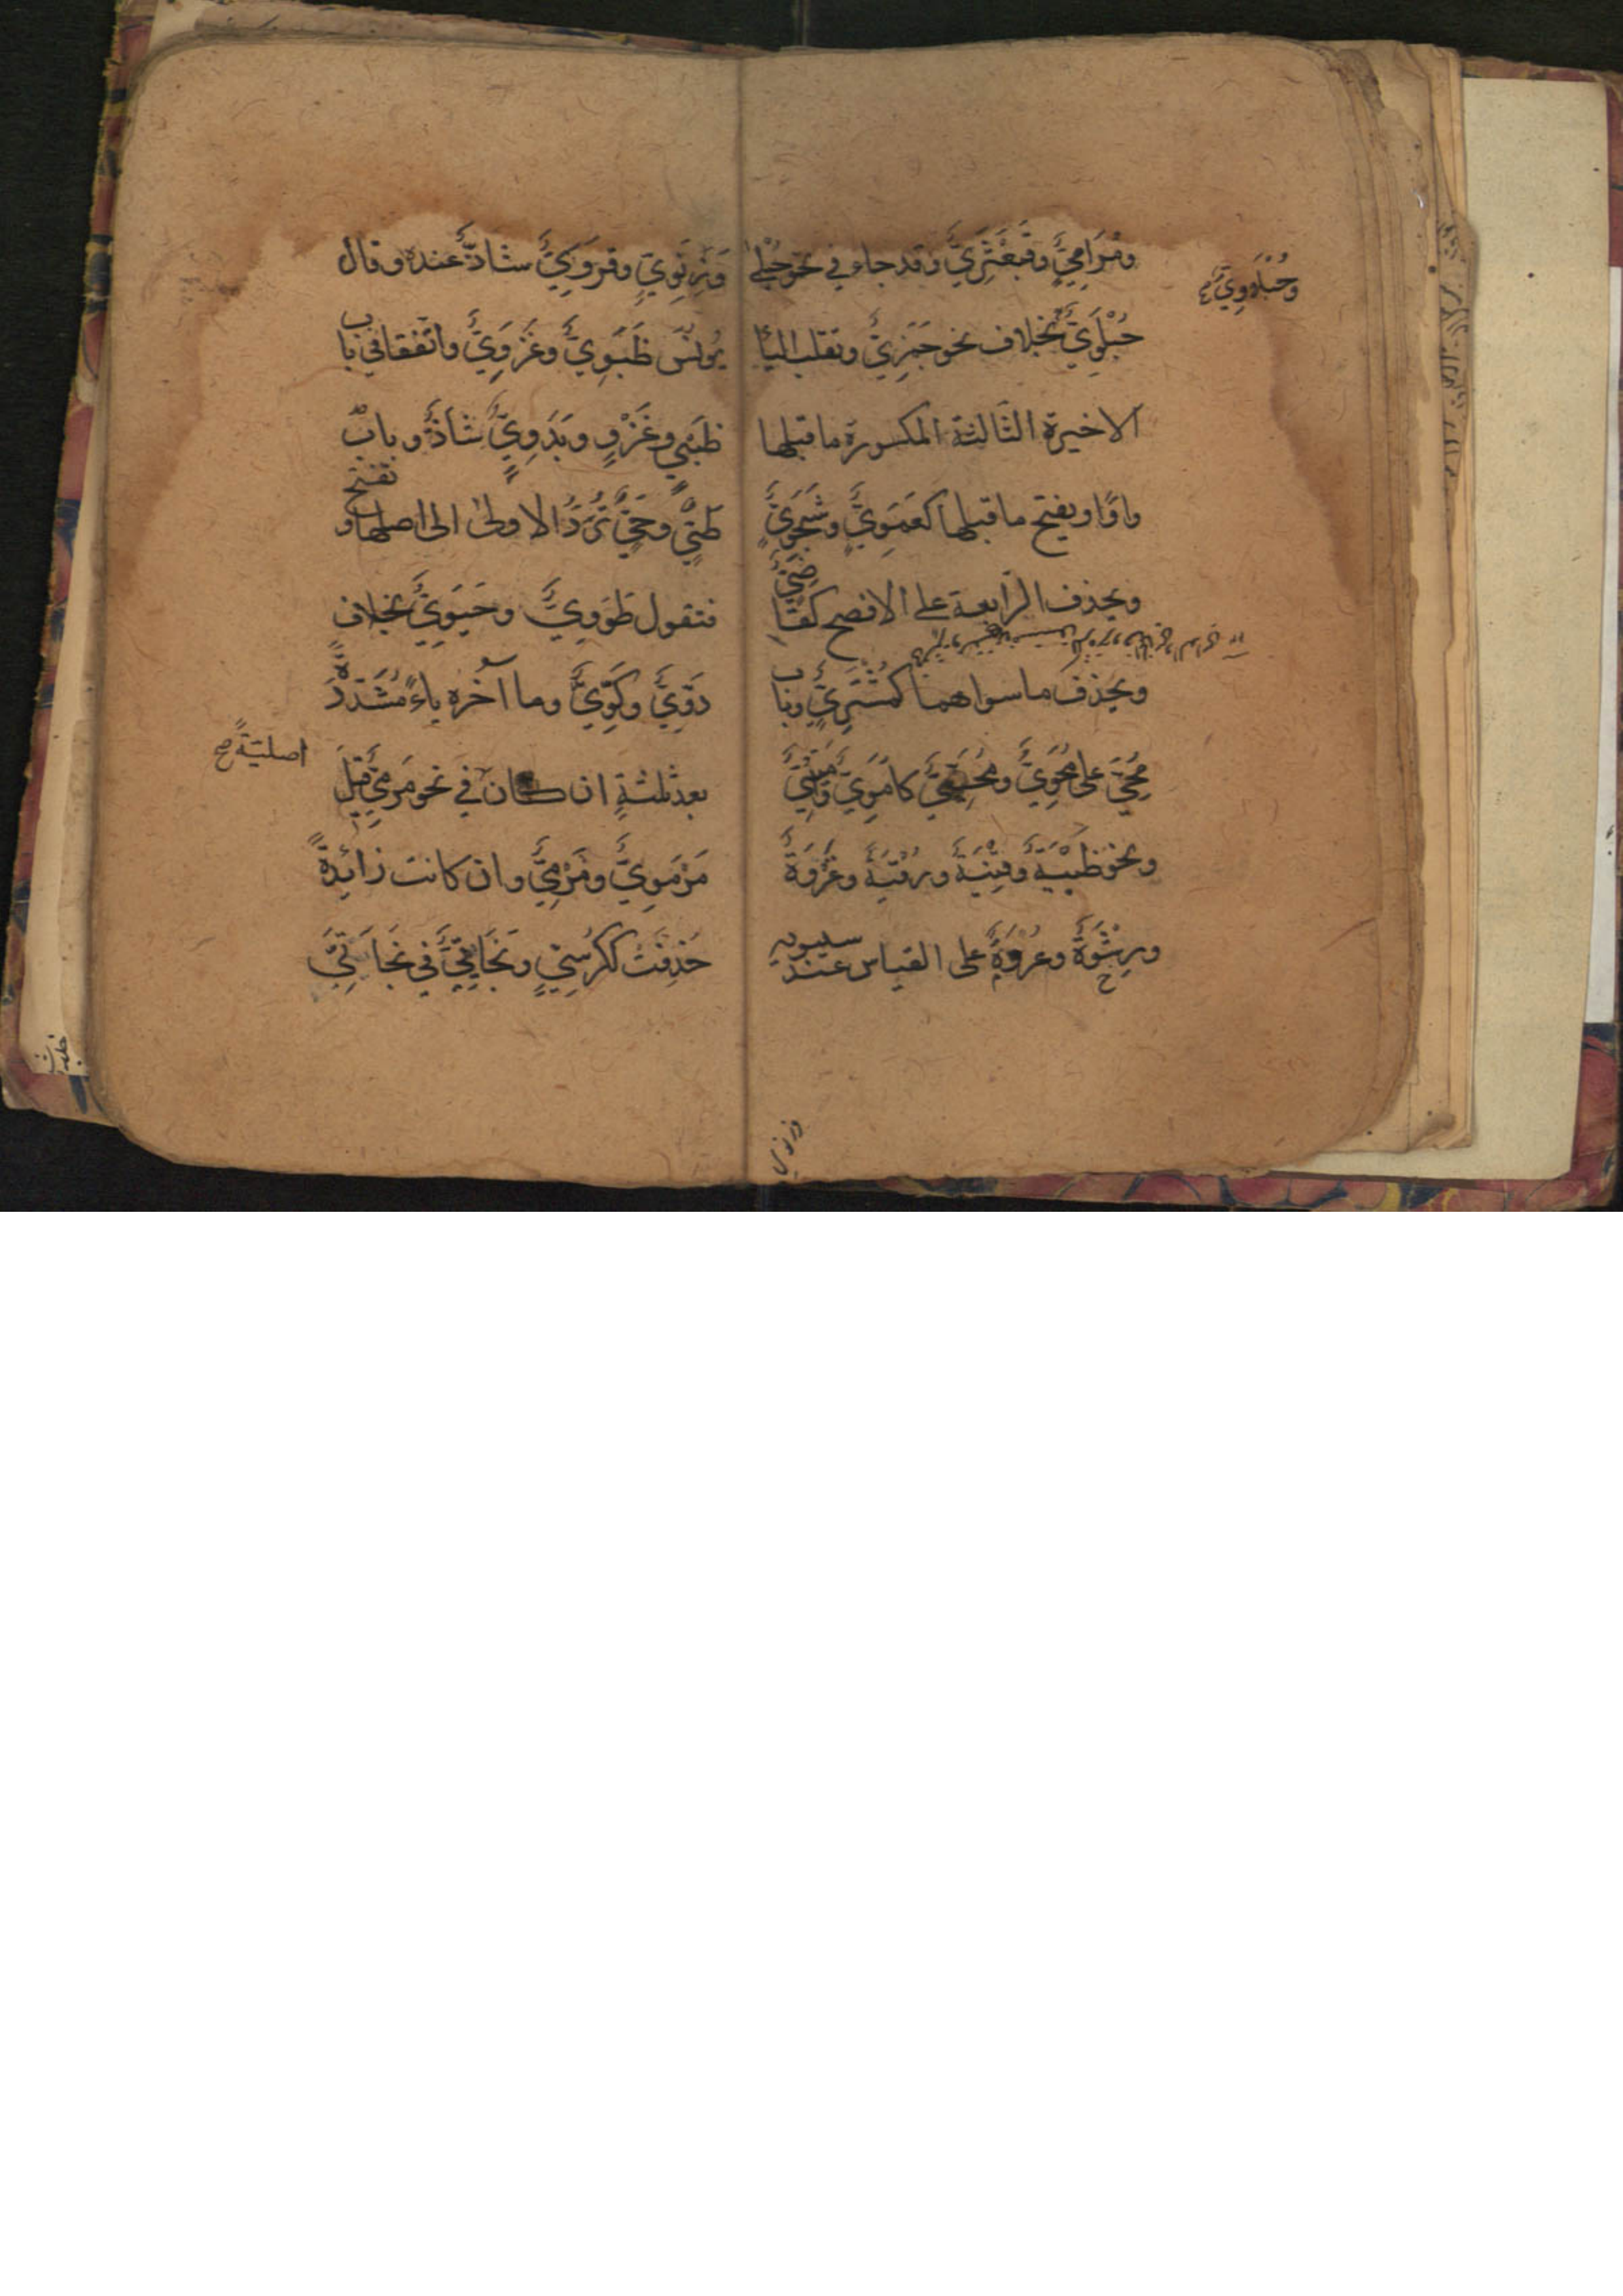 ومُرَامِيٍّ وقَبَعْثَرِيٍّ وقد جاء في نحو حُبْلىٰ
وحُبْلَاوِيٌّ
حُبْلَوِيٌّ بخلاف نحو جَمَزِيٍّ وتقلب الياء
الاخيرة الثّالثة المكسورة ما قبلها
واوًا ويفتح ما قبلها كعَمَوِيٍّ وشَجَوِيٍّ
ويحذف الرّابعة على الافصح كقاضِيٍّ
ويحذف ما سواهما كمُشْتَرِيٍّ وباب
مُحَيٍّ على مُحَوِيٍّ ومُحَيِّيٍّ كاُمَوِيٍّ
ونحو ظَبْيَةٍ وقِنْيَةٍ ورُقْيَةٍ وغَزْوَةٍ
ورِشْوَةٍ وعُرْوَةٍ على القياس عند سيبويه
وزنوي
وَزِنَوِيٌّ وقَرَوِيٌّ شاذٌّ عنده وقال
يُونُسُ ظَبَوِيٌّ وغَزَوِيٌّ واتّفقا في باب
ظَبْيٍ وغَزْوٍ وبَدَوِيٌّ شاذٌّ وبابُ
طَيٍّ وحَيٍّ تُرَدُّ الاولىٰ الى اصلها وتفتح
فتقول طَوَوِيٌّ وحَيَوِيٌّ بخلاف
دَوِّيٍّ وكَوِّيٍّ وما آخره ياءٌ مُشَدَّدَةٌ
بعد ثلثةٍ ان كان في نحو مَرْمِيٍّ قيل
اصليّةً صح
مَرْمَوِيٌّ ومَرْمِيٌّ وان كانت زائِدةً
حُذِفَتْ ككُرْسِيٍّ وبَخَاتِيٍّ في بَخَاتِيَّ